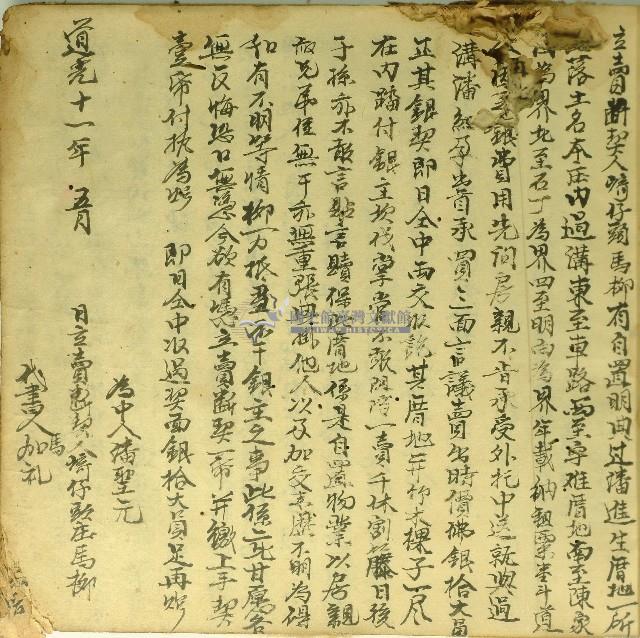 立賣斷契人埔仔頭馬柳有自置明典过潘進生厝地一所
落土名本庄内過溝東至車路西至 厝地南至陳家
為界北至石丁為界四至明白為界年載納租粟壹斗道
銀費用先问房親不肯承受外托中送就與過
溝潘 出首承買三面言議賣出時價佛銀拾大員
正其銀契即日仝中兩交收訖其厝地并竹木稞子一尽
在内踏付銀主 掌 不敢阻擋一賣千休割 藤日後
子孫亦不敢言貼言贖保 厝地係是自置物業以房親
叔兄弟侄無干亦無重張典掛他人以及加交來歷不明為碍
如有不明等情柳一力抵 不干銀主之事此係二比甘愿各
無反悔恐口無憑今欲有憑立賣斷契一帋并繳上手契
壹帋付执為炤 即日仝中收過契面銀拾大員足再炤
為中人潘聖元
道光十一年 五月 日立賣斷契人埔仔頭庄馬柳
代書人馬加礼
國史館臺灣文獻館
TAIWAN HISTORICA